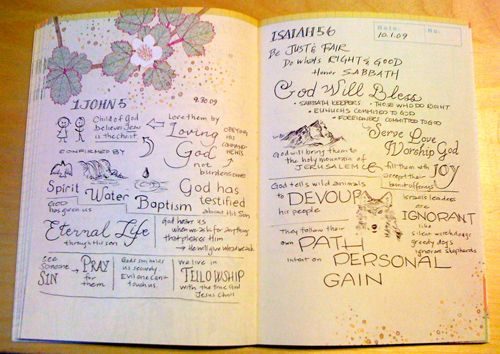 1 JOHN 5
9.30.09
Child of God
believes Jesus
is the Christ
Love them by
Loving
God
OBEYING
HIS
COMMAND
MENTS
not
burdensome
CONFIRMED BY
Spirit
Water
Baptism
God has
testified
about His Son
GOD
has given us
Eternal Life
through His Son
God hears us
when we ask for anything
that pleases Him
→ He will give what we ask
see
someone
SIN
→ PRAY
for
them
God's Son holds
us securely
Evil one can't
touch us.
we live in
FELLOWSHIP
with the true God
Jesus Christ
ISAIAH 56
Date
10.1.09
No.
BE JUST & FAIR
Do what's RIGHT & GOOD
Honor SABBATH
God Will Bless
• SABBATH KEEPERS • THOSE WHO DO RIGHT
• EUNUCHS COMMITTED TO GOD
• FOREIGNERS COMMITTED TO GOD
Serve Love
Worship God
God will bring them to
the holy mountain of
JERUSALEM &
fill them with
JOY
accept their
burnt offerings
God tells wild animals
to DEVOUR
his people
Israel's leaders
are
IGNORANT
like
silent watchdogs
greedy dogs
ignorant shepherds
They follow their
own PATH
intent on PERSONAL
GAIN